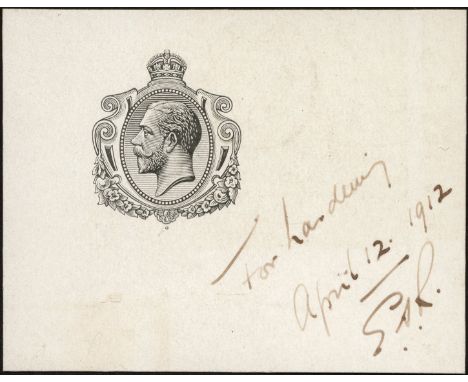 For hardening
April 12. 1912